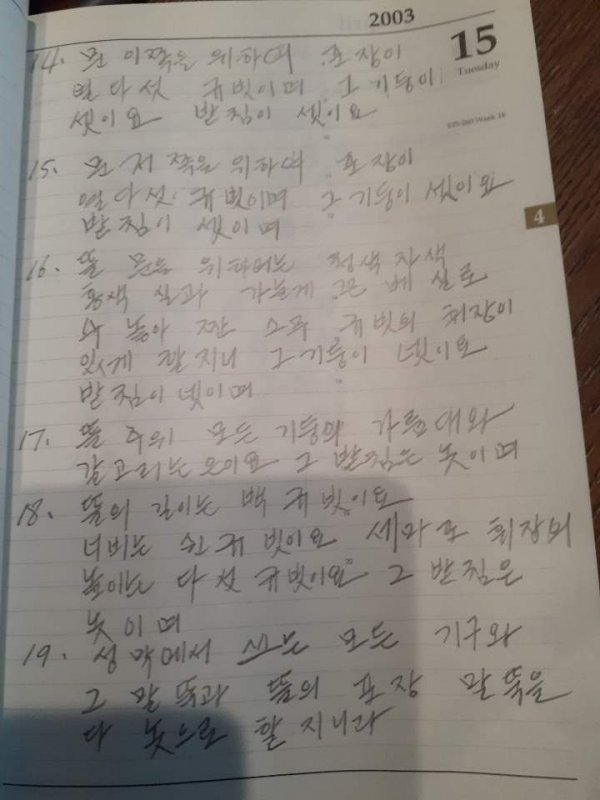 2003
15
Tuesday
105-260 Week 16
4
14. 문 이쪽을 위하여 포장이
열 다섯 규빗이며 그 기둥이
셋이요 받침이 셋이요
15. 문 저 쪽을 위하여 포장이
열 다섯 규빗이며 그 기둥이 셋이요
받침이 셋이며
16. 뜰 문을 위하여는 청색 자색
홍색 실과 가늘게 꼰 베 실로
수 놓아 짠 스무 규빗의 휘장이
있게 할지니 그 기둥이 넷이요
받침이 넷이며
17. 뜰 주위 모든 기둥의 가름대와
갈고리는 은이요 그 받침은 놋이며
18. 뜰의 길이는 백 규빗이요
너비는 쉰 규빗이요 세마포 휘장의
높이는 다섯 규빗이요 그 받침은
놋이며
19. 성막에서 쓰는 모든 기구와
그 말뚝과 뜰의 포장 말뚝을
다 놋으로 할지니라